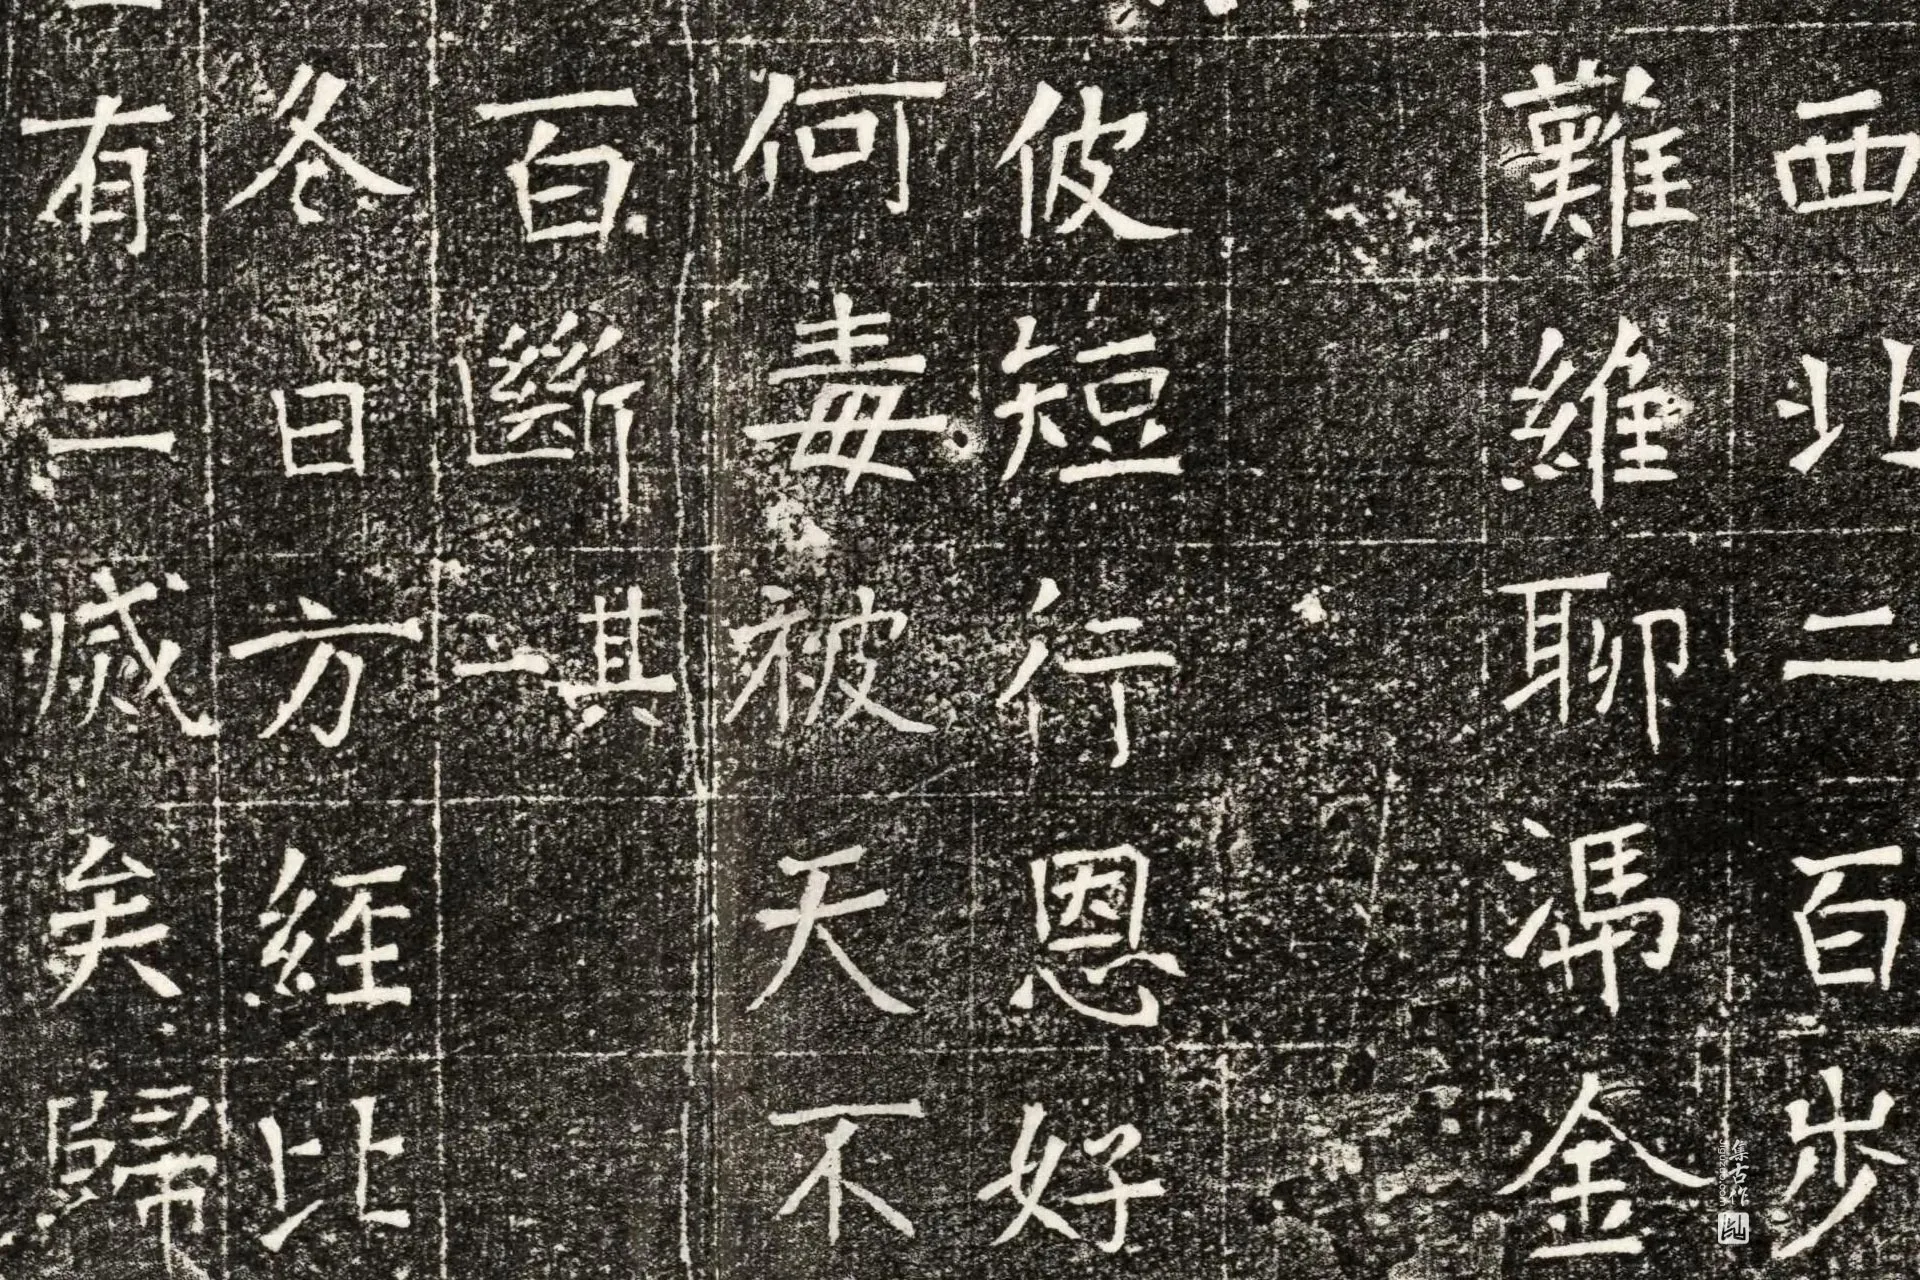 西北二百步
難維聊馮金
彼短行恩好
何毒被天不
百斷其一
冬日方經比
有二歲矣歸
集古作